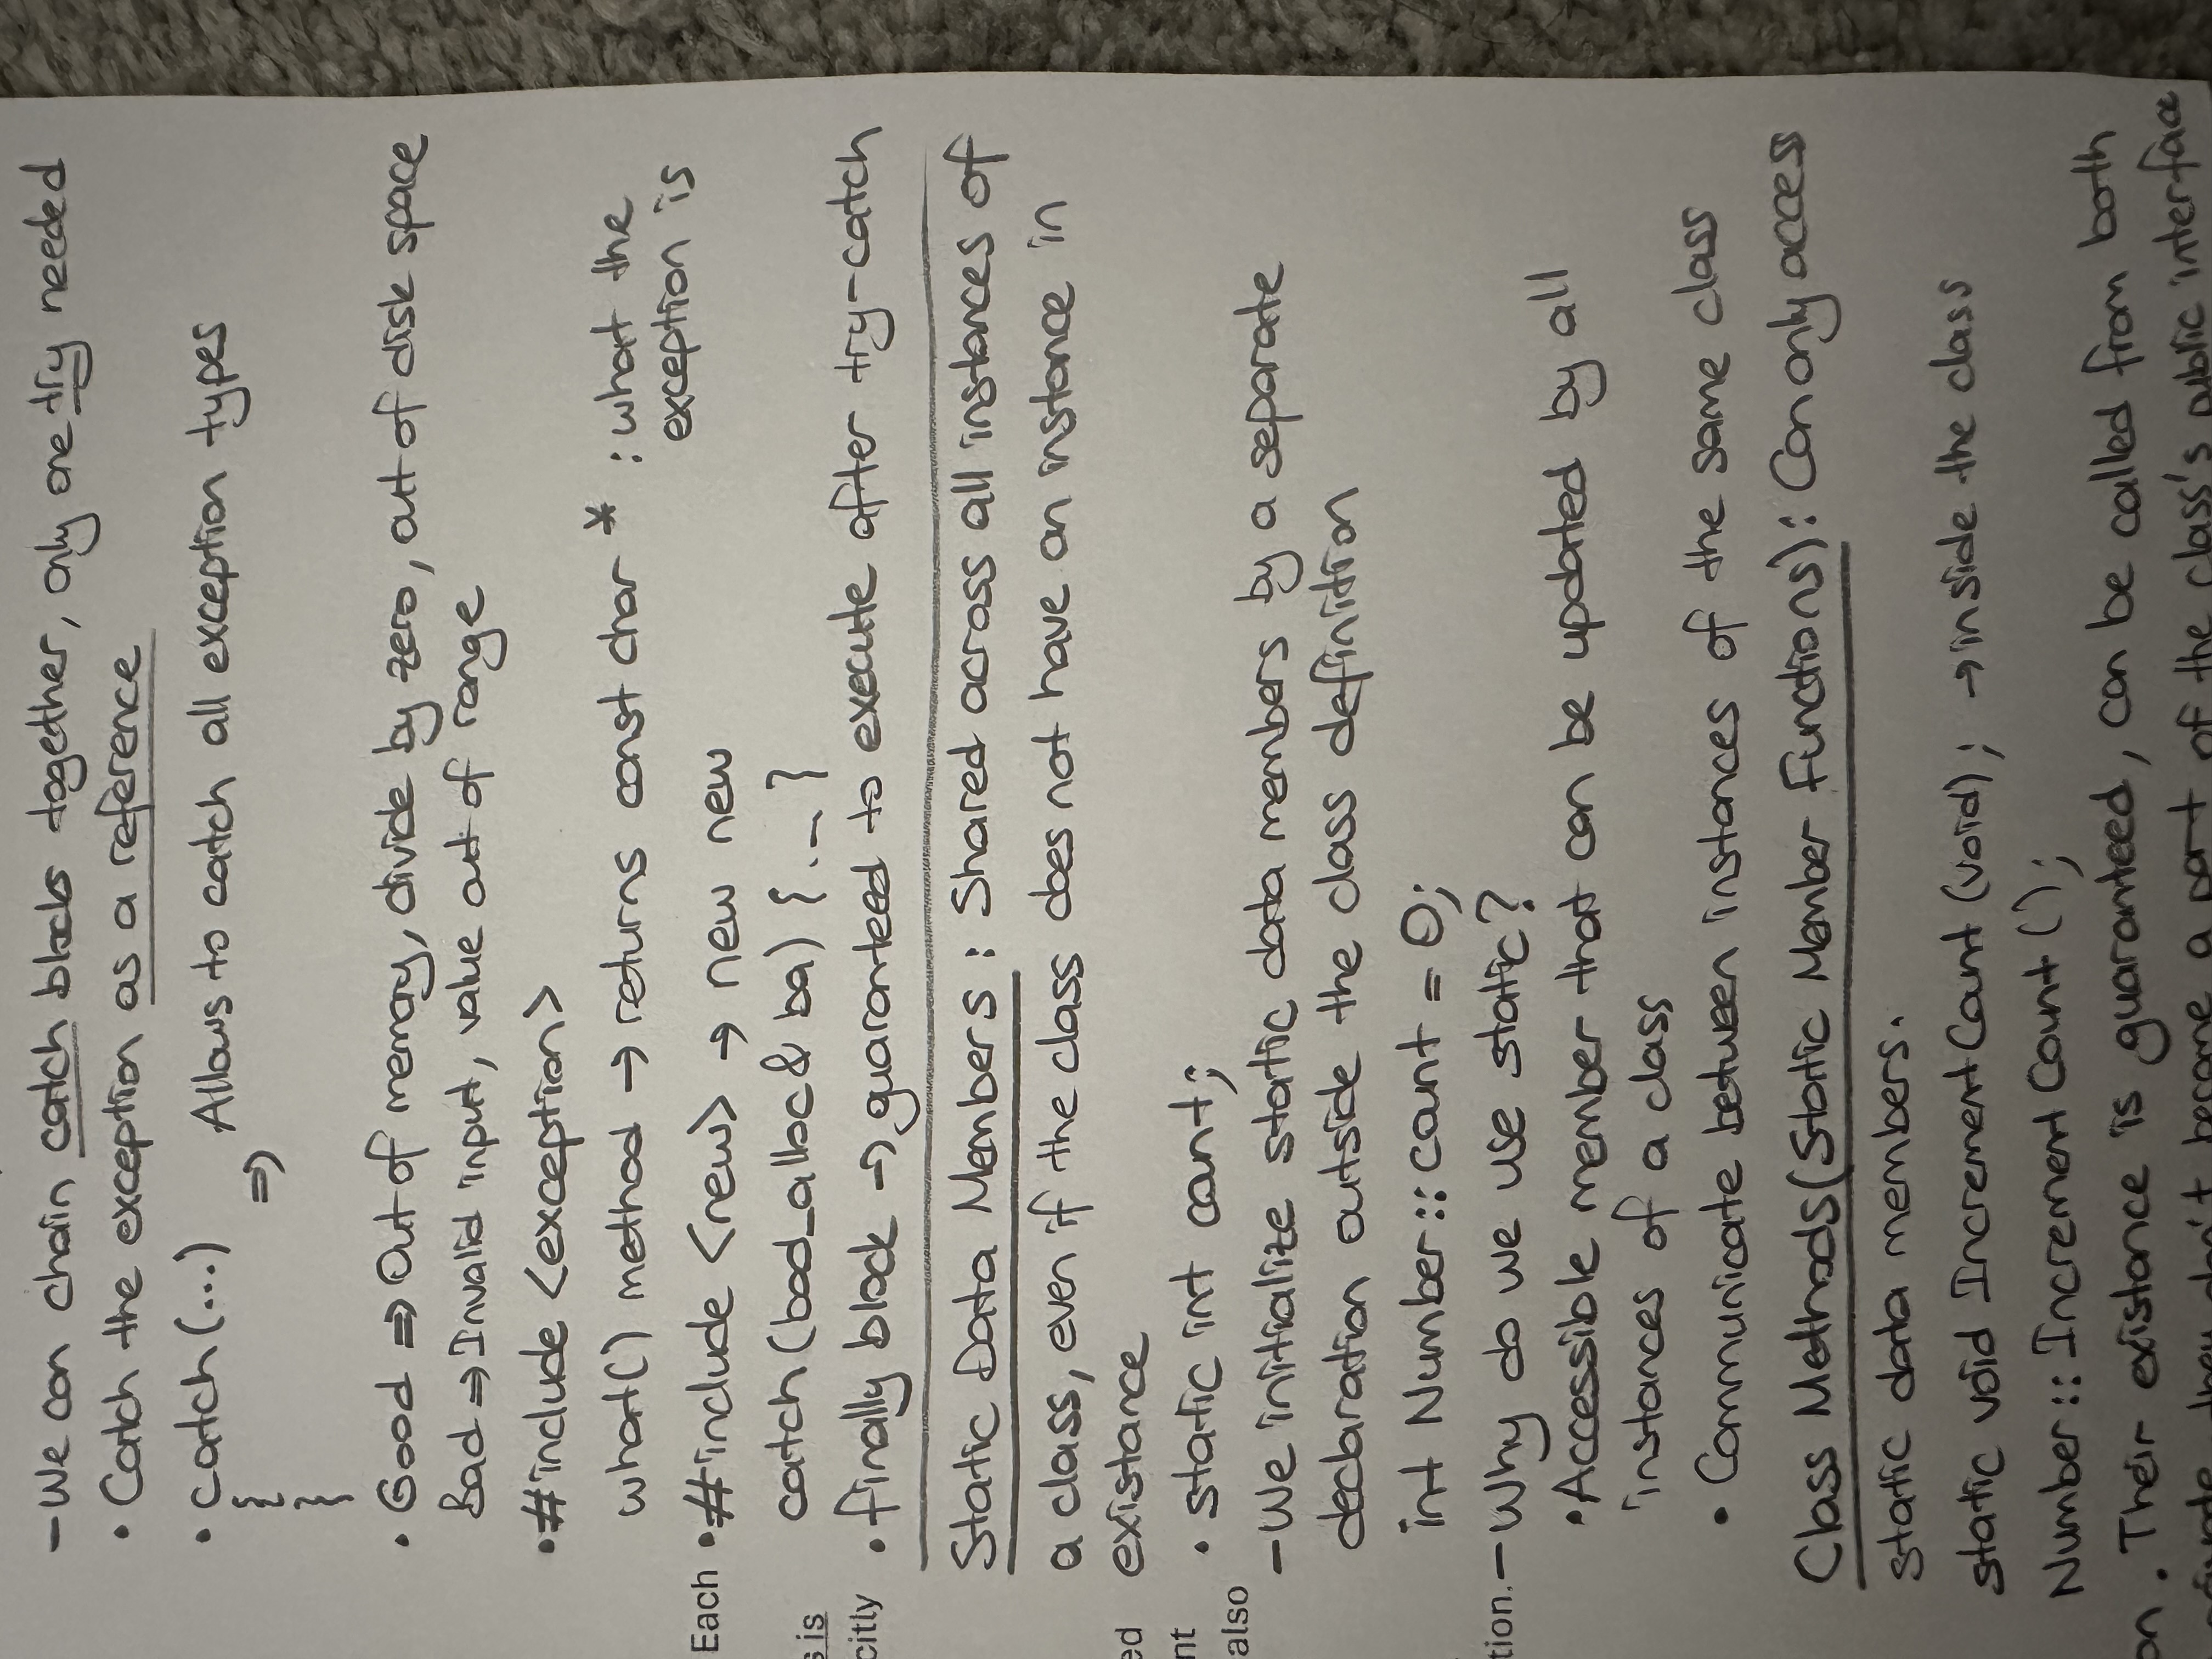 -We can chain catch blocks together, only one try needed
• Catch the exception as a reference
• catch(...)
{
⇒ Allows to catch all exception types
}
• Good ⇒ Out of memory, divide by zero, out of disk space
Bad ⇒ Invalid input, value out of range
• #include <exception>
what() method → returns const char * : what the
exception is
Each
• #include <new> → new new
s is
catch(bad_alloc& ba) { ... }
citly
• finally block → guaranteed to execute after try-catch
Static Data Members : Shared across all instances of
a class, even if the class does not have an instance in
ed
existance
nt
• static int count;
also
-We initialize static data members by a separate
declaration outside the class definition
int Number::count = 0;
tion.
-Why do we use static?
• Accessible member that can be updated by all
instances of a class
• Communicate between instances of the same class
Class Methods(Static Member Functions): Can only access
static data members.
static void IncrementCount(void); → inside the class
Number::IncrementCount();
on
• Their existance is guaranteed, can be called from both
they don't become a part of the class's public interface